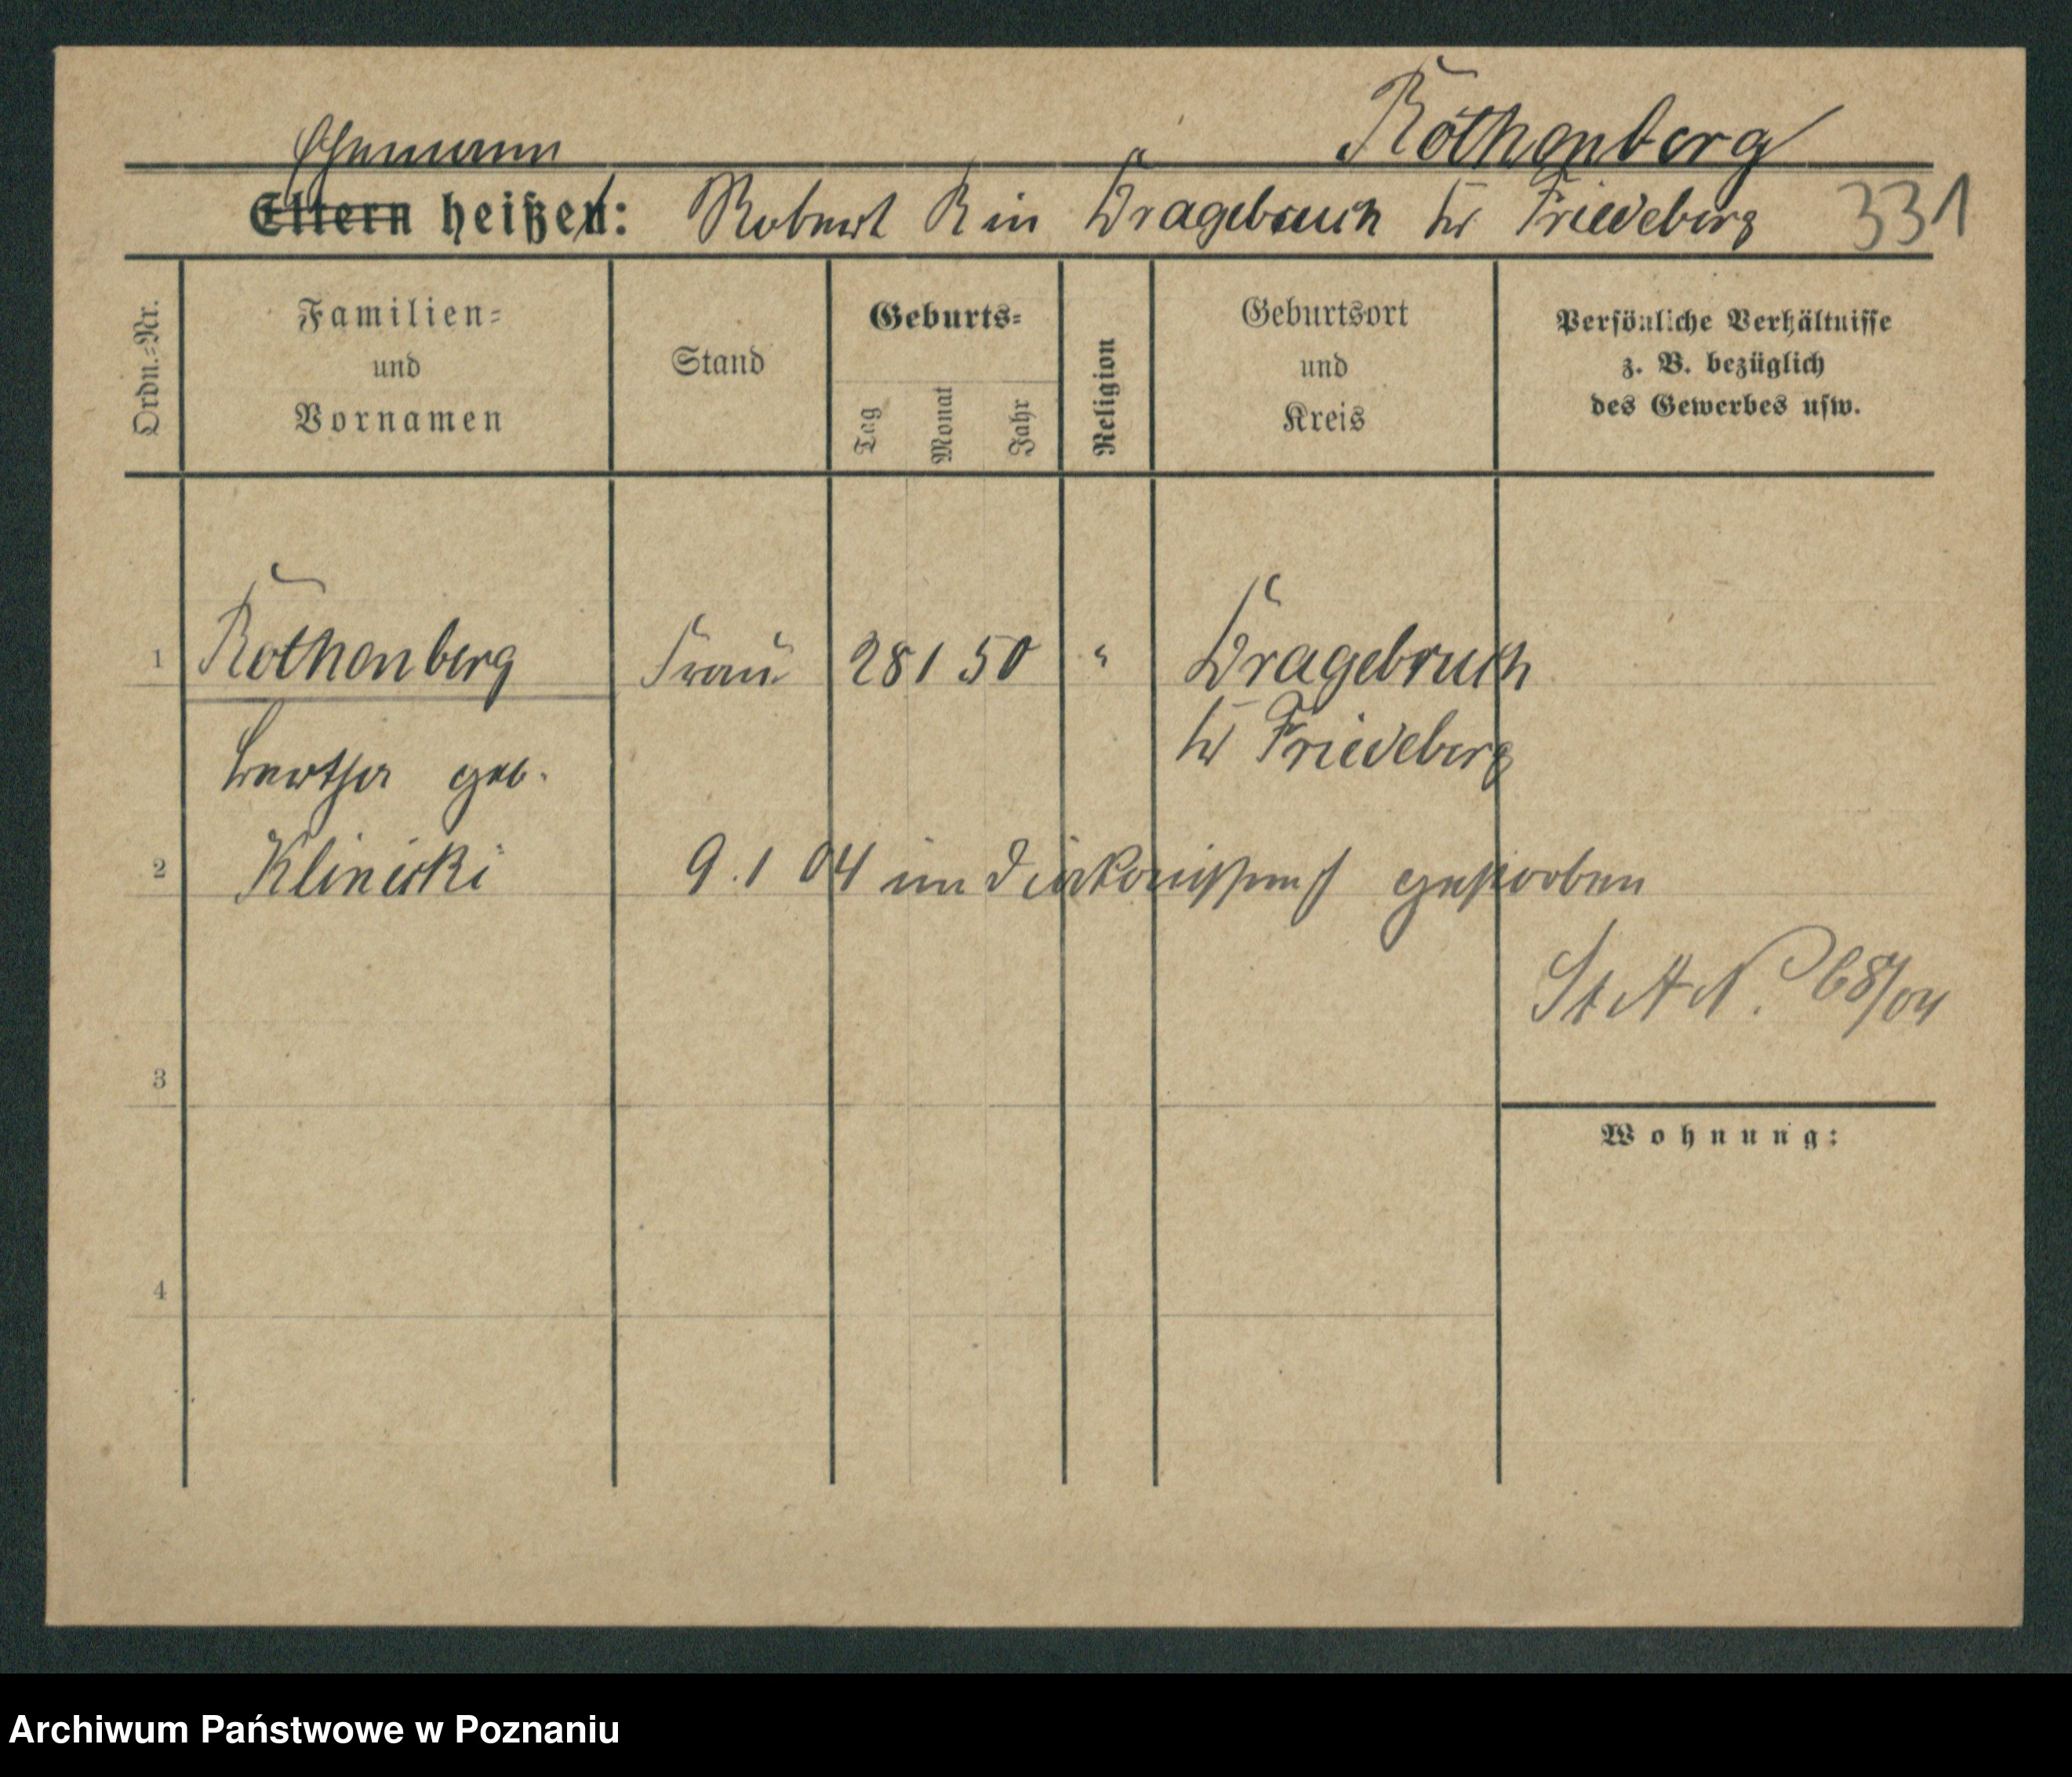 Rothenberg
Ehemann
Eltern heißen: Robert R in Dragebruch Kr Friedeberg 331
Ordn.=Nr.
Familien=
und
Vornamen
Stand
Geburts=
Tag
Monat
Jahr
Religion
Geburtsort
und
Kreis
Persönliche Verhältnisse
z. B. bezüglich
des Gewerbes usw.
1 Rothenberg Frau 28 1 50 " Dragebruch
Kr Friedeberg
Bertha geb.
2 Klinicki 9. 1 04 im gestorben
St A N. 68/04
3
Wohnung:
4
Archiwum Państwowe w Poznaniu